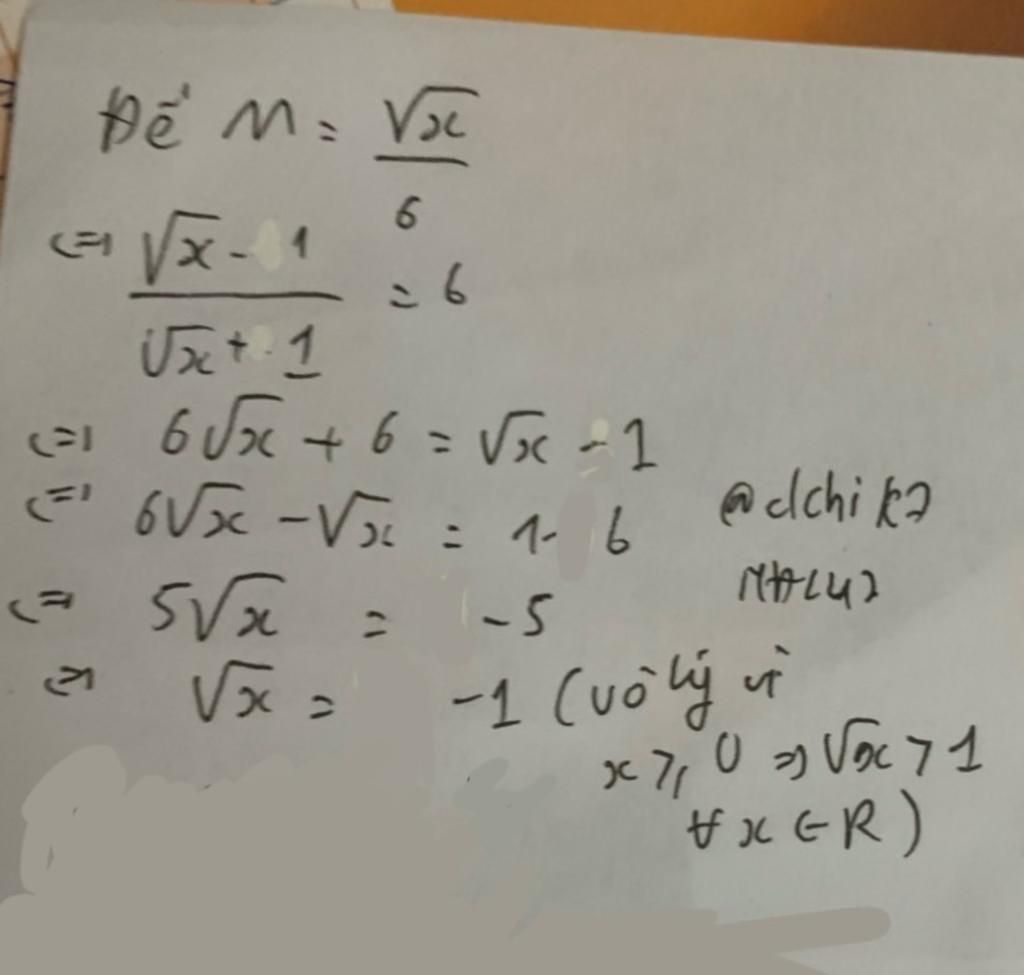 Để M = √x / 6
<=> (√x - 1) / (√x + 1) = 6
<=> 6√x + 6 = √x - 1
<=> 6√x - √x = 1 - 6
<=> 5√x = -5
<=> √x = -1 (vô lý vì
x ≥ 0 => √x > 1
∀ x ∈ R)